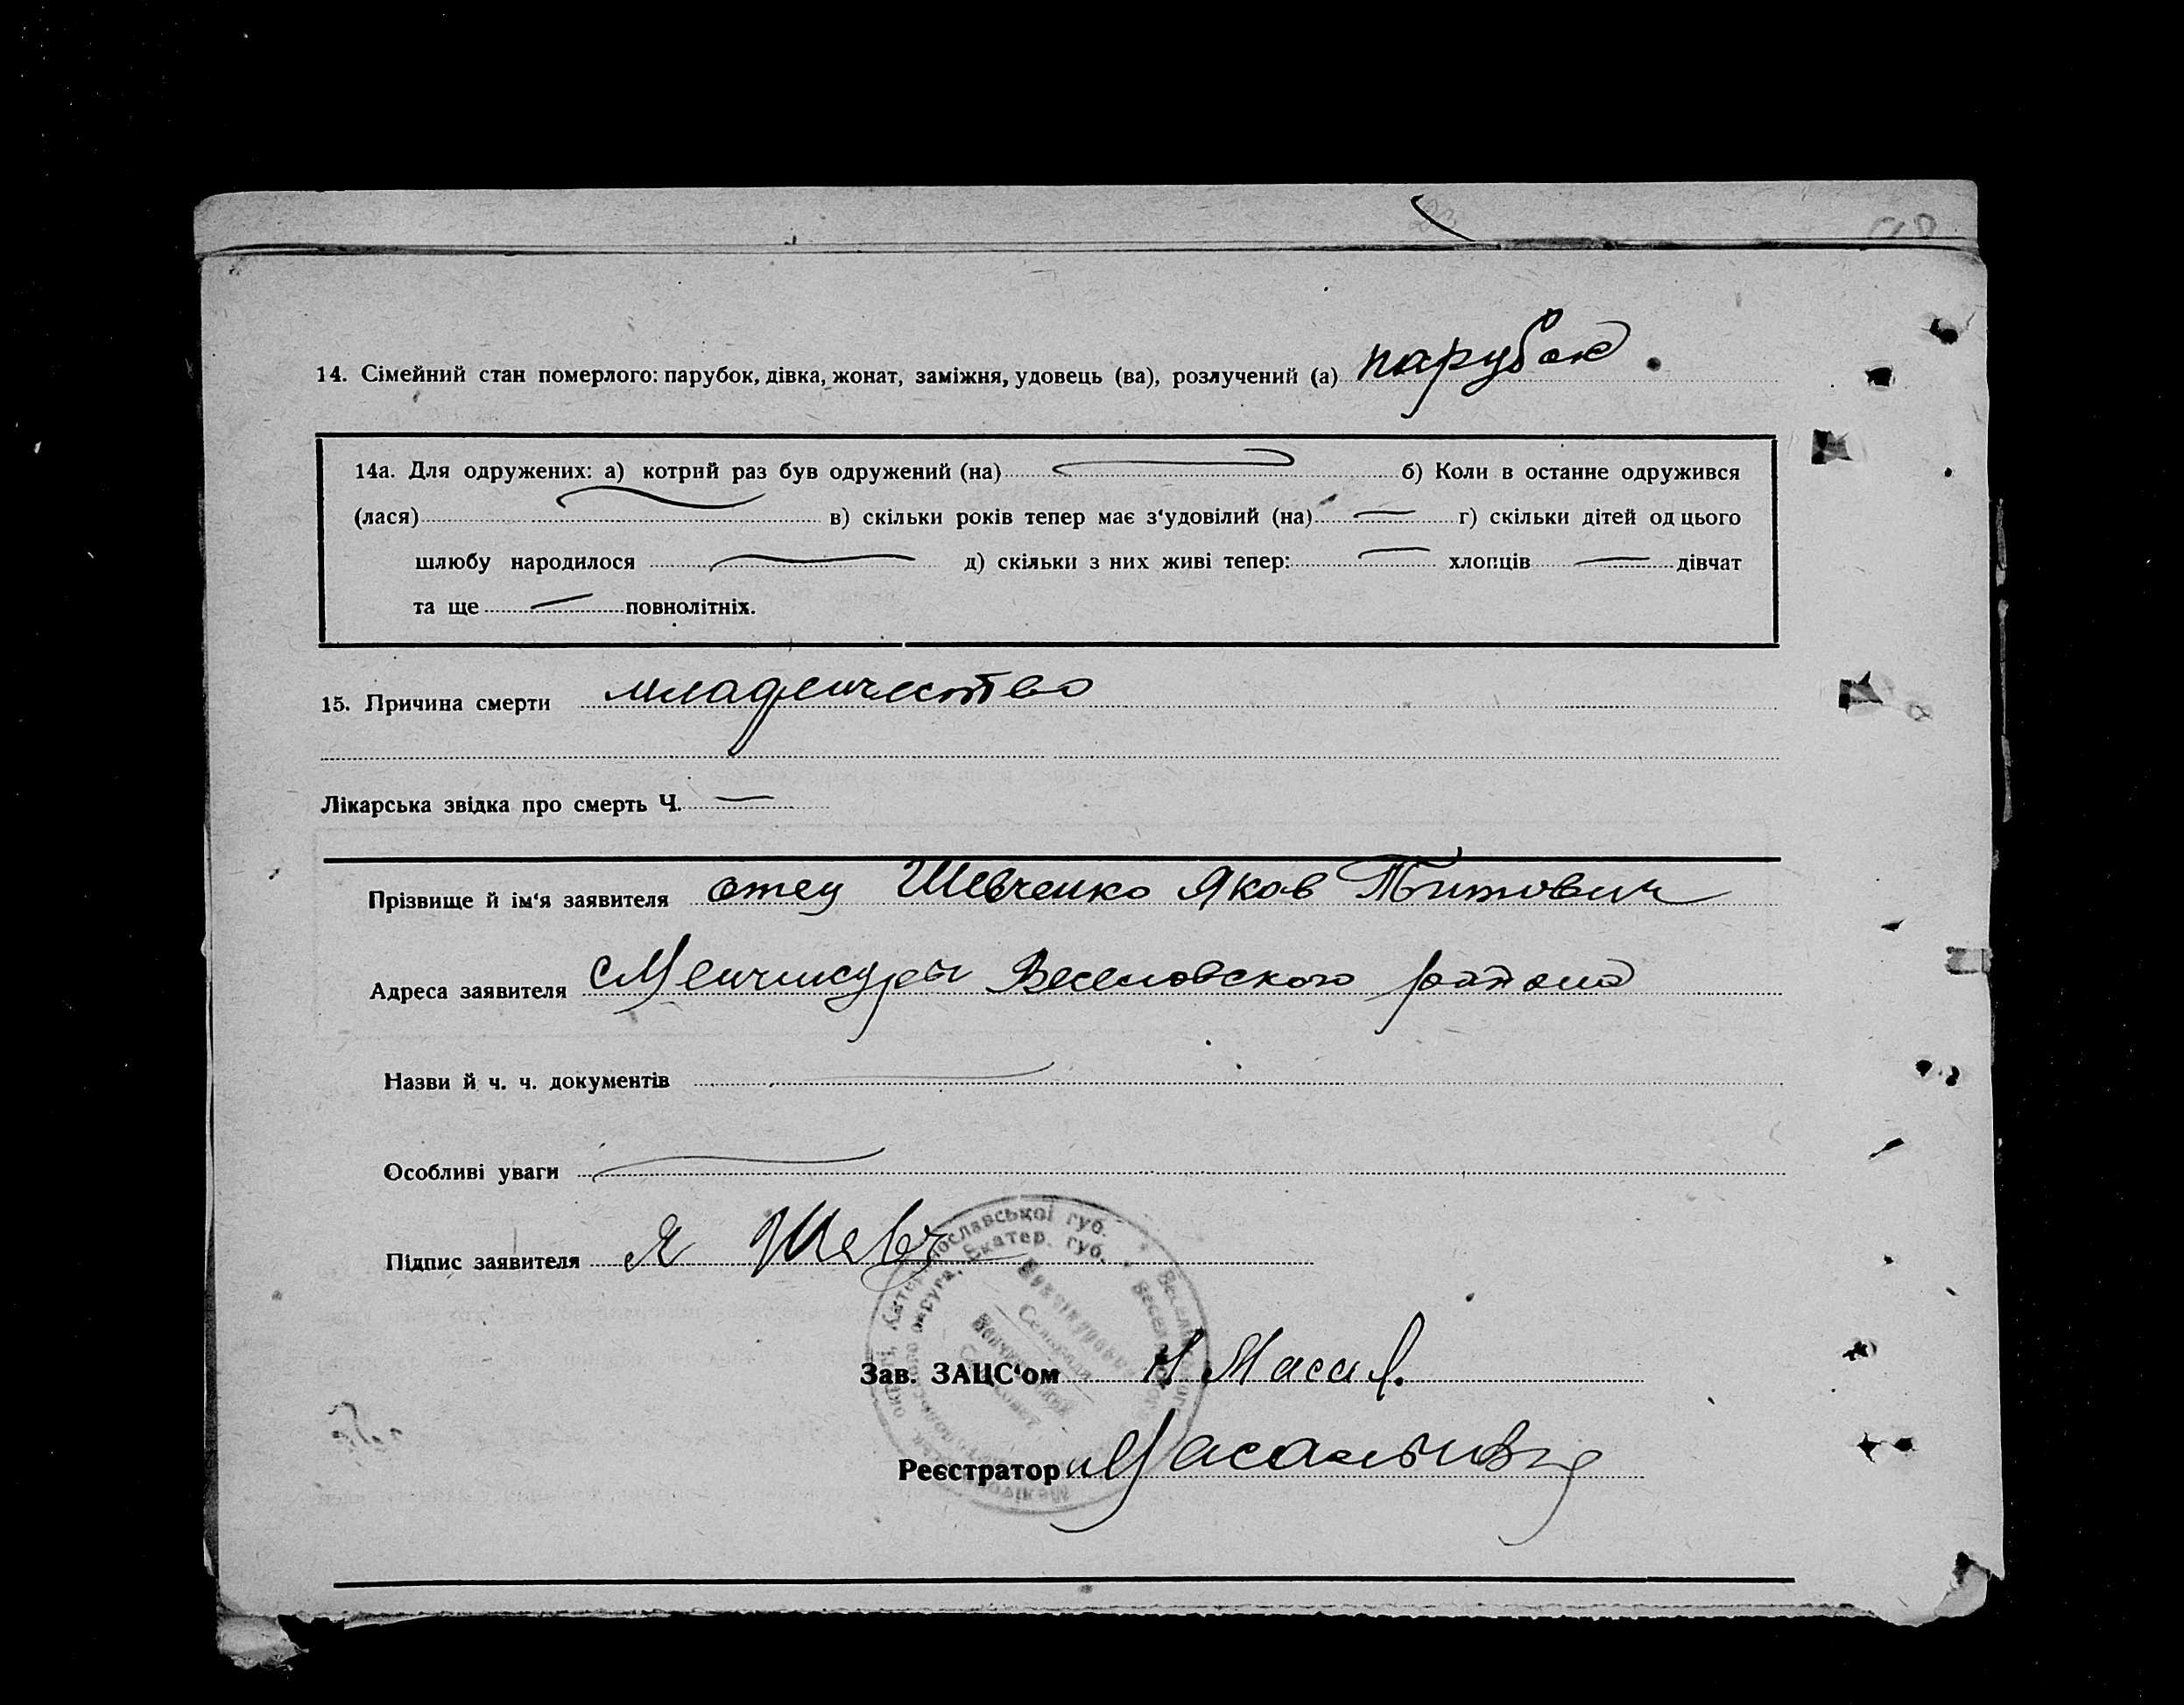 14. Сімейний стан померлого: парубок, дівка, жонат, заміжня, удовець (ва), розлучений (а) парубок
14а. Для одружених: а) котрий раз був одружений (на) б) Коли в останне одружився
(лася) в) скільки років тепер має з‘удовілий (на) г) скільки дітей од цього
шлюбу народилося д) скільки з них живі тепер: хлопців дівчат
та ще повнолітніх.
15. Причина смерти младенчество
Лікарська звідка про смерть Ч.
Прізвище й ім‘я заявителя отец Шевченко Яков Титович
Адреса заявителя с Менчикуры Веселовского района
Назви й ч. ч. документів
Особливі уваги
Підпис заявителя Я Шевч
Катеринославської губ.
округа, Екатер. губ.
Зав. ЗАЦС‘ом
Реєстратор